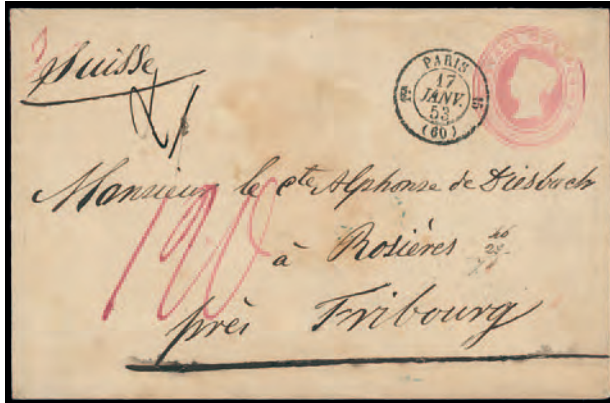 Suisse
PARIS
17
JANV.
53
(60)
15
Monsieur le cte Alphonse de Diesbach
120
à Rosières
près Fribourg